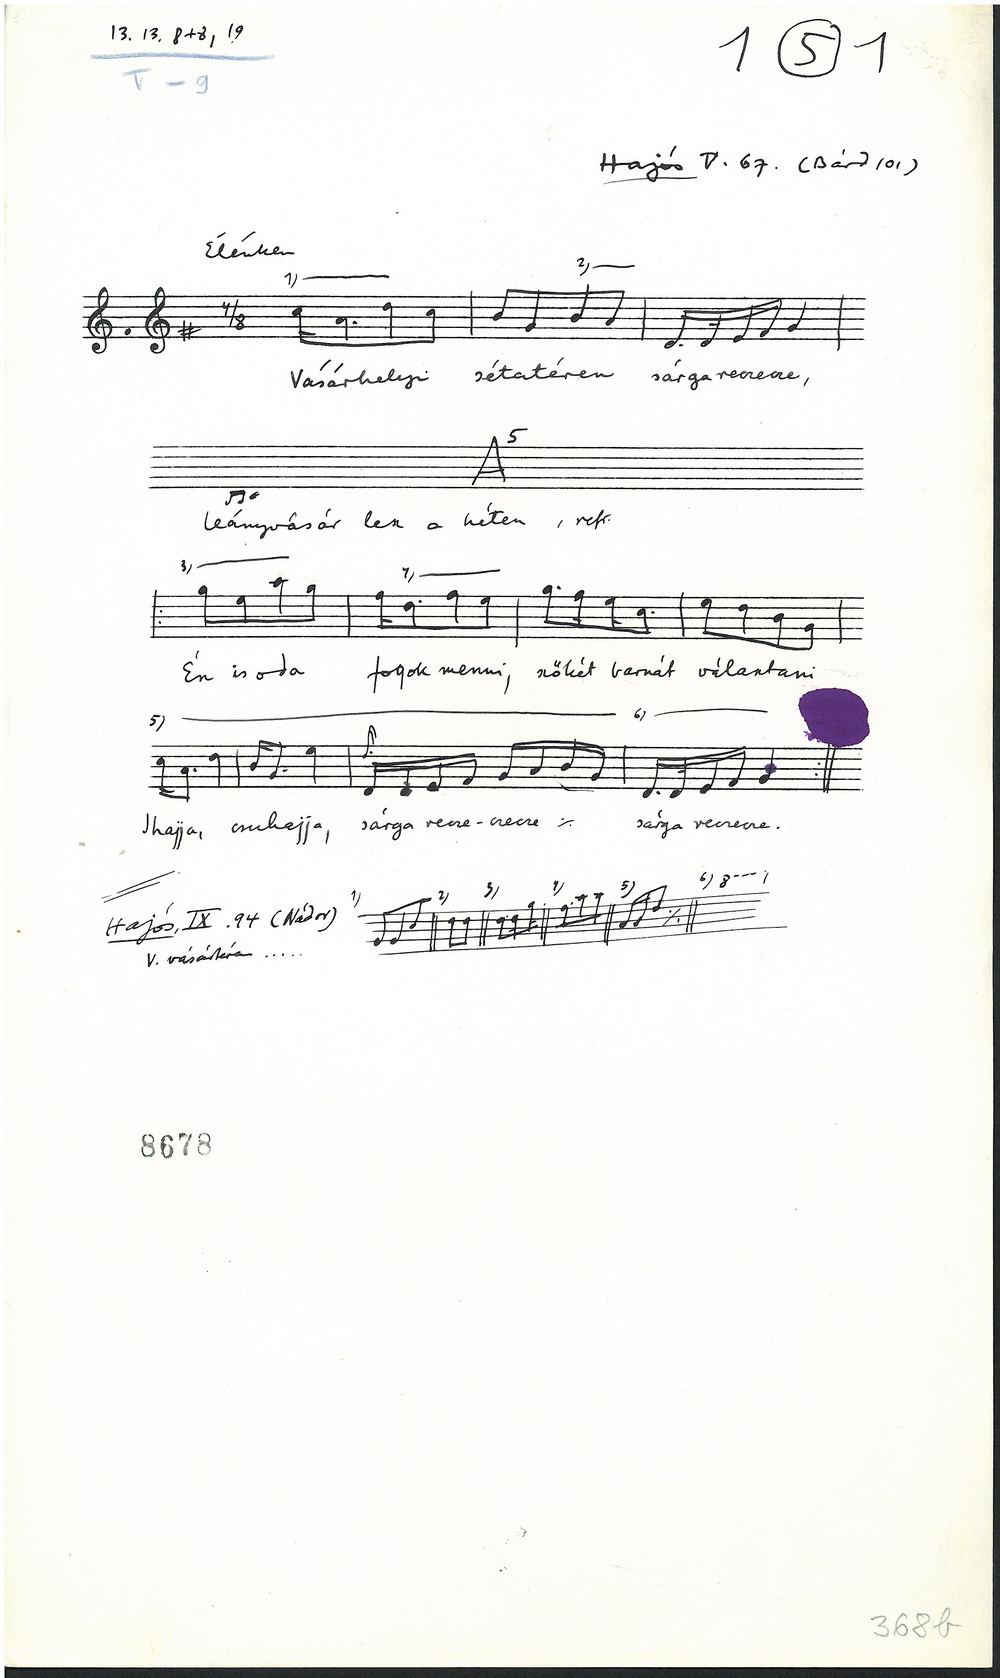 13. 13. 8+8, 19
V - 9
1 (5) 1
Hajós V. 67. (Bárd 101)
Élénken
1) 2)
4/8
Vásárhelyi sétatéren sárga recrece,
A 5
leányvásár lesz a héten , refr.
3) 4)
Én is oda fogok menni, szőkét barnát választani
5) 6)
Ihajja, csuhajja, sárga recre-crecre ٪ sárga recrecre.
1) 2) 3) 4) 5) 6) 8
Hajós, IX. 94 (Nádor)
V. vásártérén .....
8678
368b